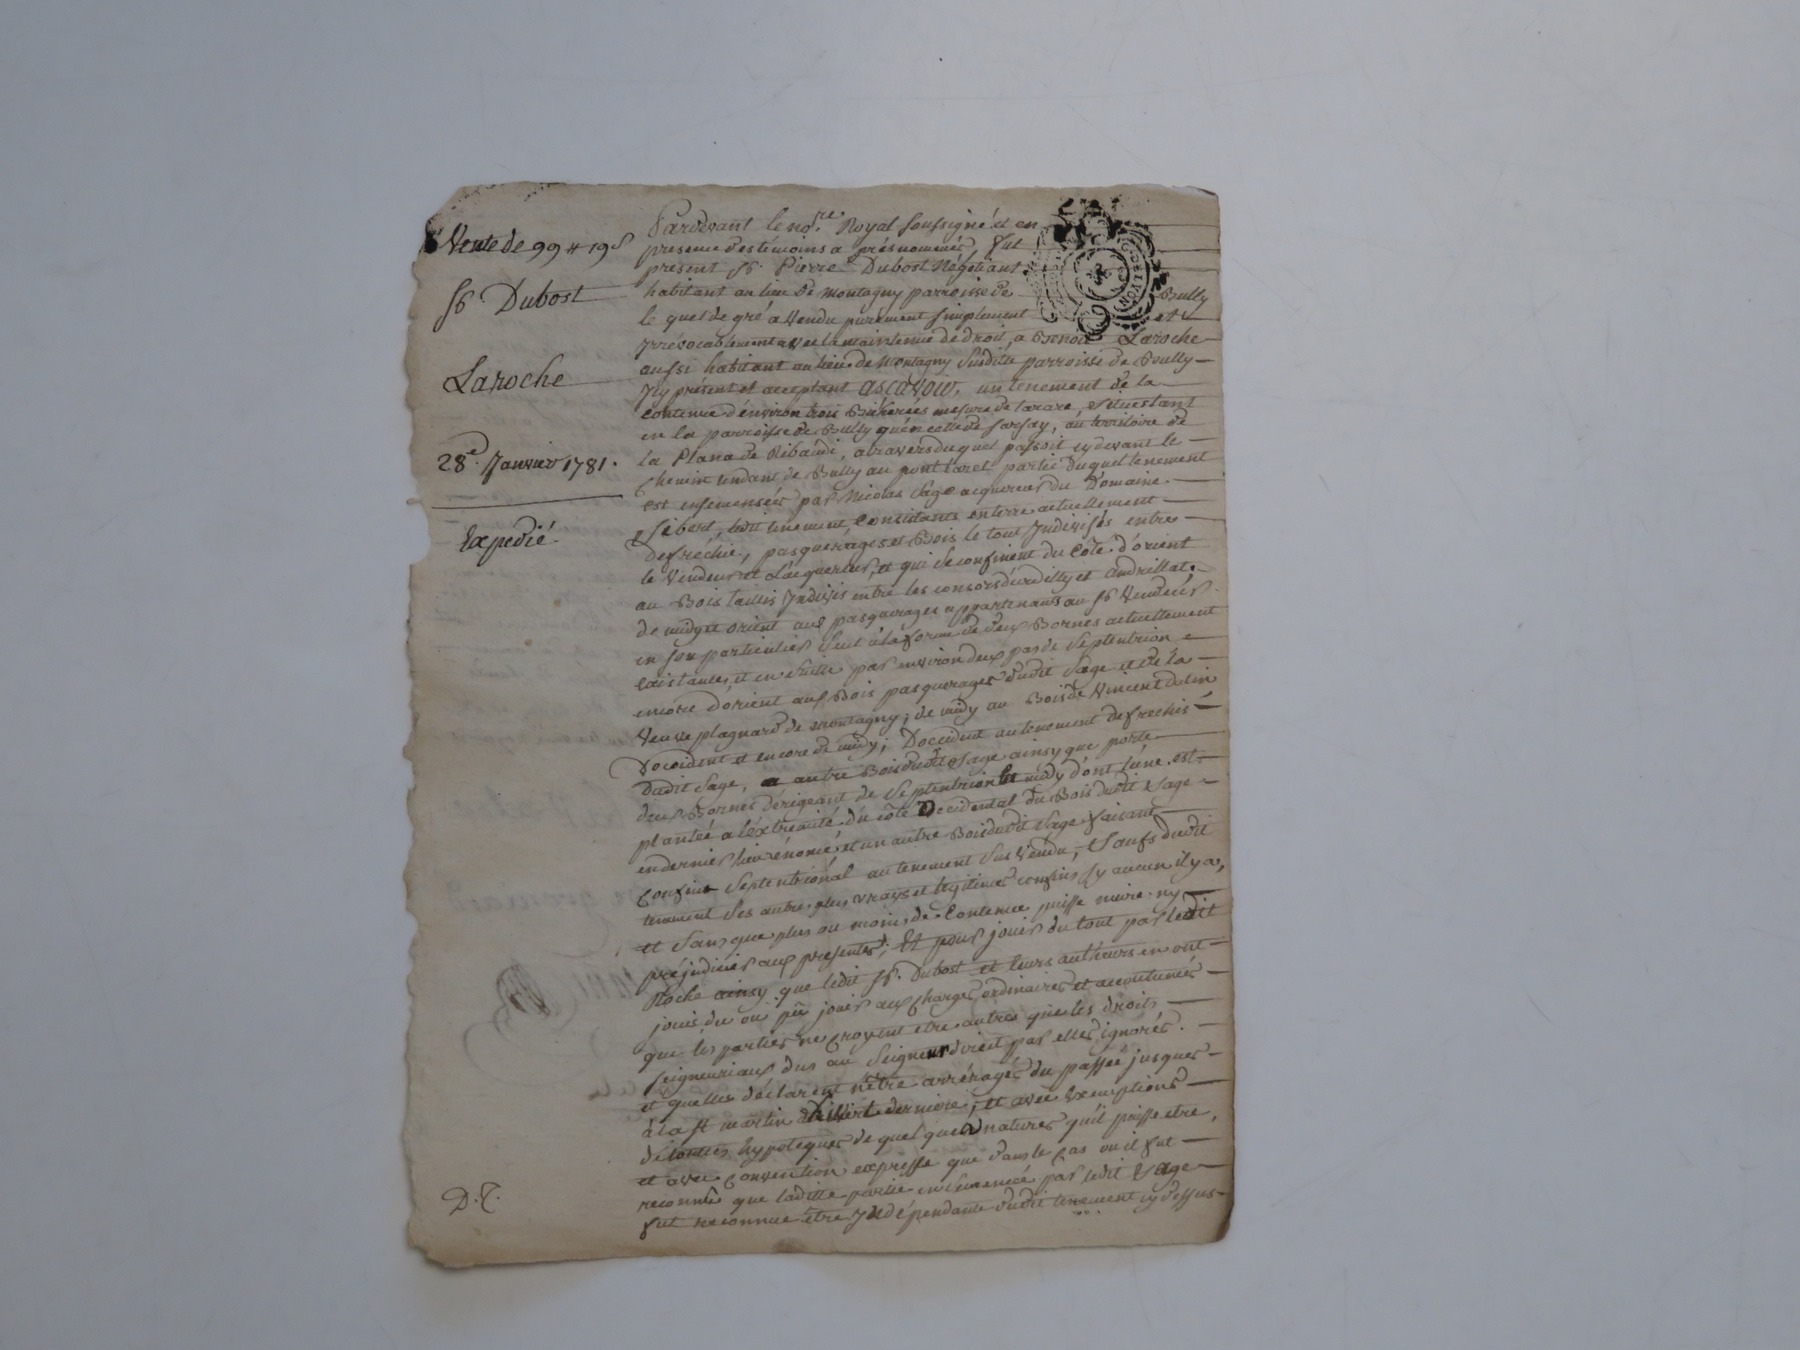 Vente de 99 ₶ 19 s
Sr. Dubost
Laroche
28e. Janvier 1781.
Expedié.
Pardevant le nore. Royal soussigné et en
presence des témoins aprés nommés, fut
present Sr. Pierre Dubost Négotiant
habitant au lieu de Montagny parroisse de Bully
le quel de gré à vendu purement simplement et
yrrévocablement avec la maintenue de droit, a Benoit Laroche
aussi habitant au lieu de Montagny susditte parroisse de Bully
Icy présent et acceptant ascavoir, un tenement de la
contenue d'environ trois Bicherées mesure de tarare, situé tant
en la parroisse de Bully qu'en celle de Sarsay, au territoire de
la Plana de Ribaudi, a travers du quel passoit cy devant le
chemin tendant de Bully au pont taret partie du quel tenement
est ensemensée par Nicolas Sage acquereur du Domaine
Sibert, ledit tenement, Consistants en terre actuellement
defréchie, pasquerages et Bois le tout Indivisés entre
le vendeur et l'acquereur, et qui se confinent du côté d'orient
au Bois taillis Indivis entre les consors et Andrillat,
de midy et orient aux pasquerages appartenants au Sr. vendeur
en son particulier suit à la forme de deux Bornes actuellement
existantes, et en suitte par environ deux pas de Septentrion
encore d'orient aux Bois pasquerages dudit Sage et de la
veuve plagnard de Montagny; de midy au Bois de Vincent Dalin
d'occident et encore de midy; D'occident au tenement defrechis
dudit Sage, autre Bois dudit Sage ainsy que porte
deux Bornes dérigeant de Septentrion en midy d'ont l'une est
plantée a l'éxtremité du côté Occidental du Bois dudit Sage
en dernier lieu rénomé et un autre Bois dudit Sage faisant
confins Septentrional au tenement sus vendu, Saufs dudit
tenement ses autres plus vrays et legitimes confins sy aucun il y a,
et sans que plus ou moins de contenue puisse nuire ny
préjudicier aux presentes; Et pour jouir du tout par ledit
Roche ainsy que ledit Sr. Dubost et leurs auteurs en ont
jouis du ou pû jouir aux charges ordinaires et accoutumés
que les parties ne croyent etre autres que les droits
seigneuriaux dus au Seigneur direct par elles ignorés.
et quelles déclarent n'etre arréragés du passée jusques
à la St martin d'hivert derniere; et avec Exemptions
de touttes hypoteques de quelques natures qu'il puisse etre,
et avec convention expresse que dans le cas ou il fut
reconnûe que laditte partie ensemencée par ledit Sage
fut reconnue être Indépendante dudit tenement cy dessus